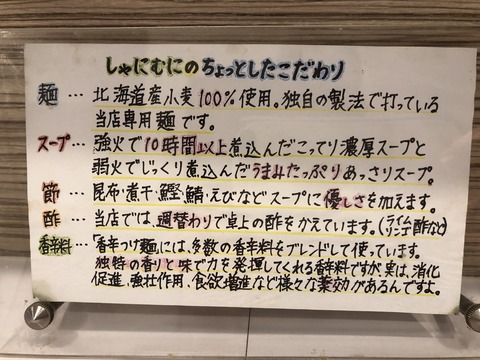 しゃにむにのちょっとしたこだわり
麺…北海道産小麦100%使用。独自の製法で打っている
当店専用麺です。
スープ…強火で10時間以上煮込んだこってり濃厚スープと
弱火でじっくり煮込んだうまみたっぷりあっさりスープ。
節…昆布・煮干・鰹・鯖・えびなどスープに優しさを加えます。
酢…当店では、週替わりで卓上の酢をかえています。(ライム リンゴ酢など)
香辛料…「香辛つけ麺」には、多数の香辛料をブレンドして使っています。
独特の香りと味で力を発揮してくれる香辛料ですが実は、消化
促進、強壮作用、食欲増進など様々な薬効があるんですよ。